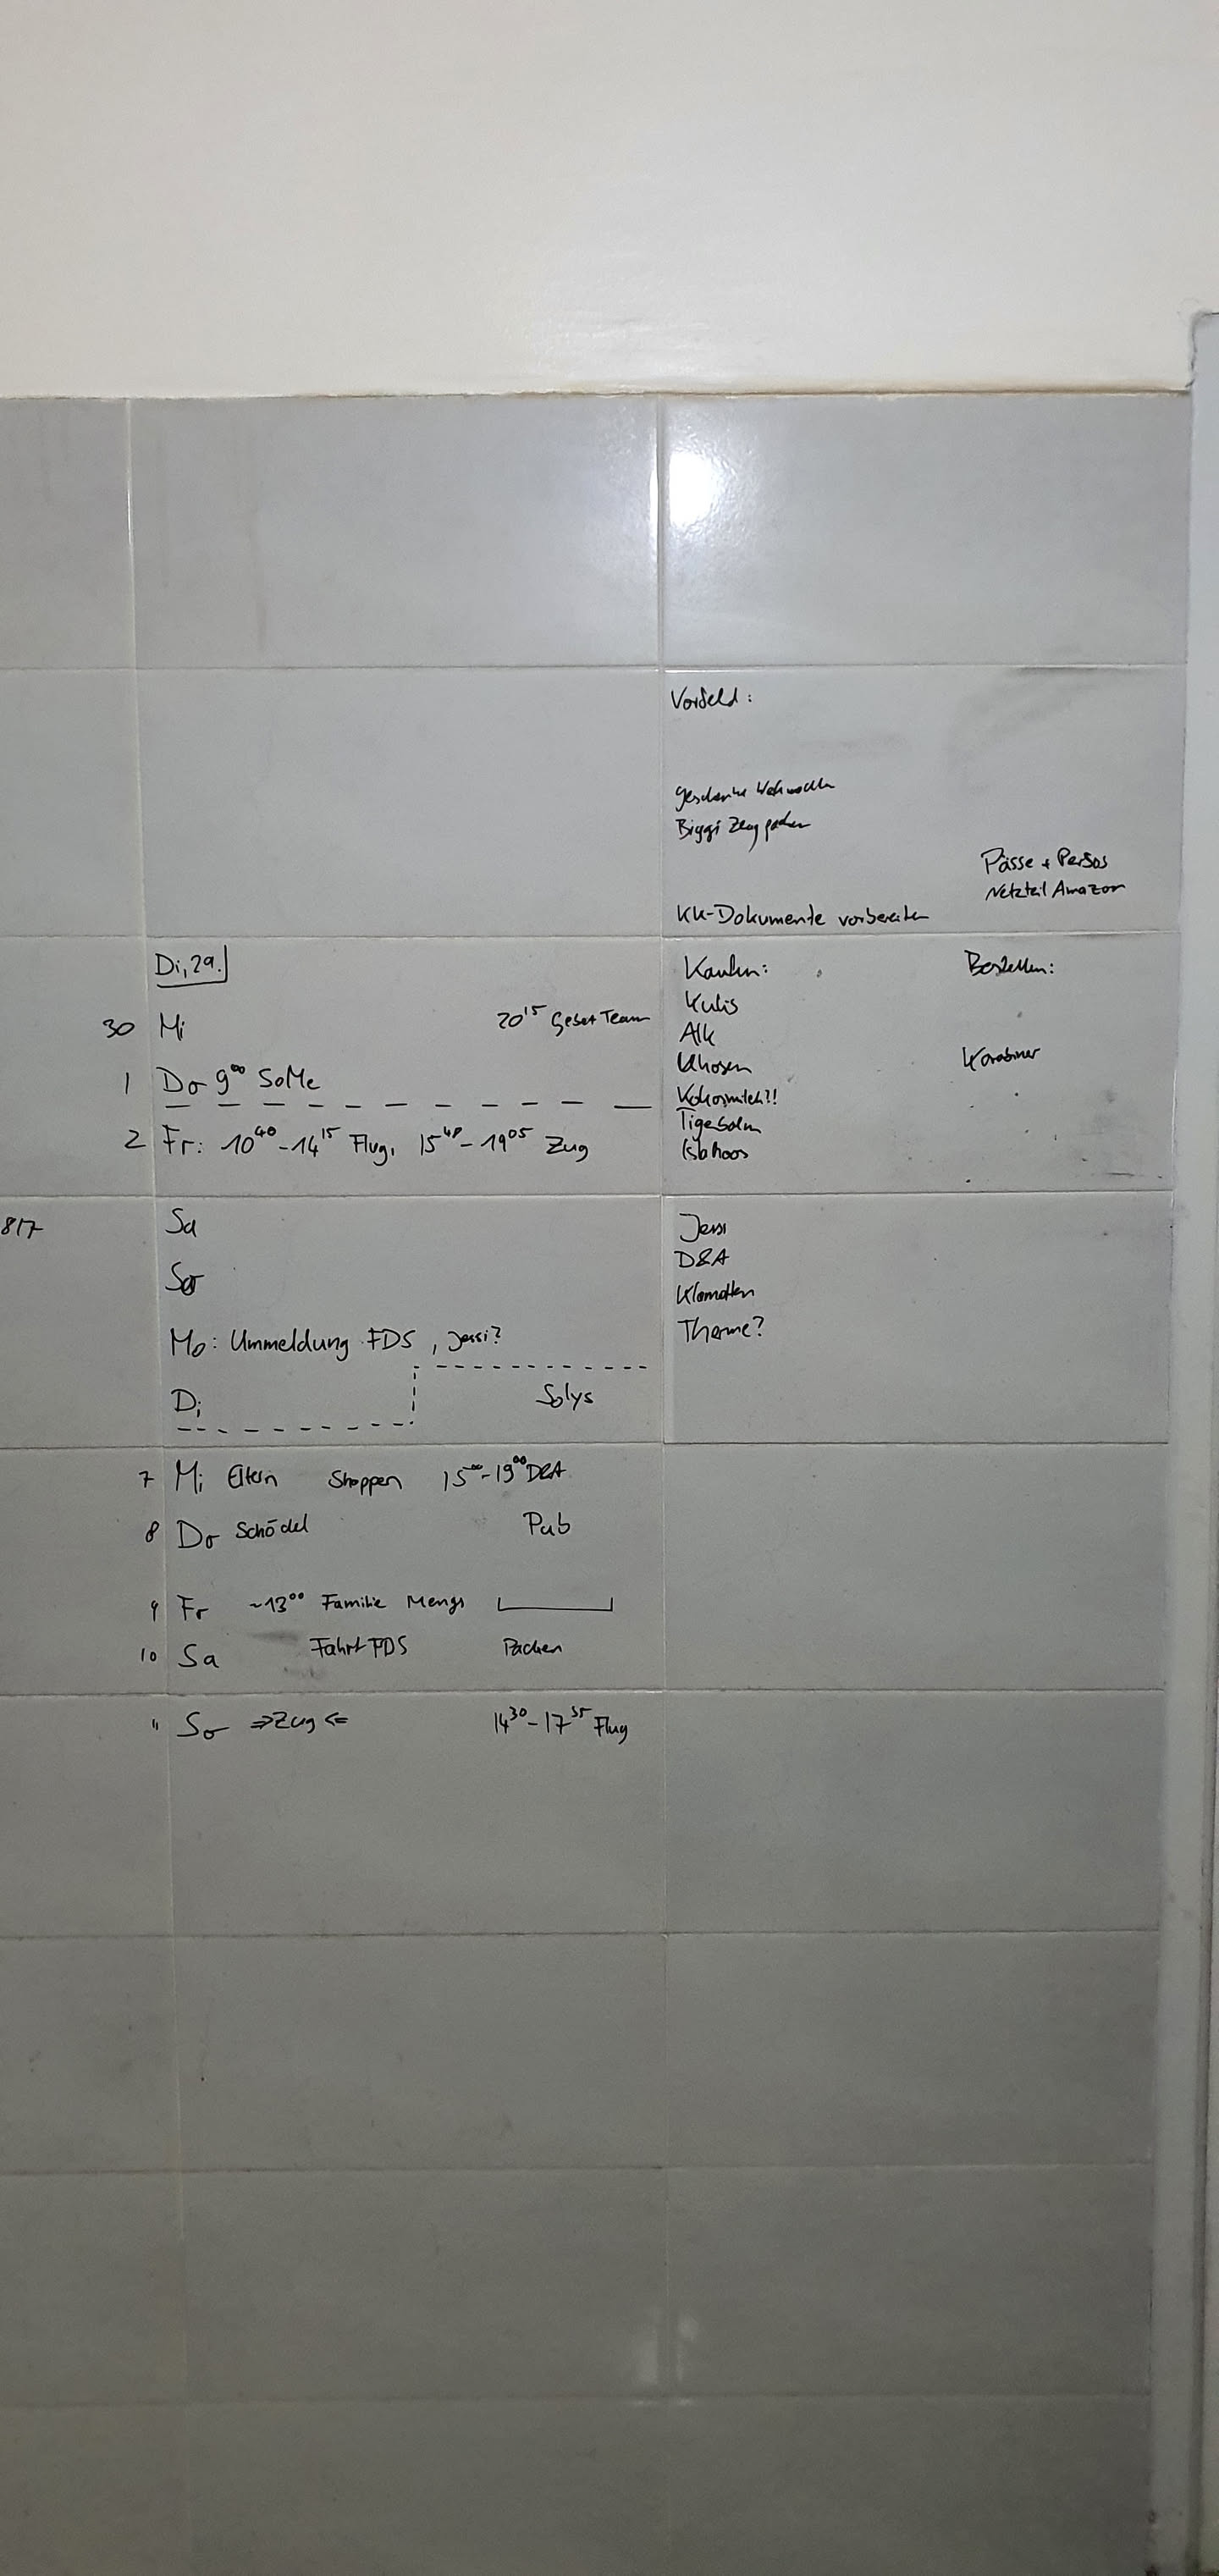 Vorfeld:
Geschenke
Biggi Zeug packen
Pässe + Persos
Netzteil Amazon
KK-Dokumente vorbereiten
Di, 29.
30 Mi 20¹⁵ Gebet Team
1 Do 9⁰⁰ SoMe
2 Fr: 10⁴⁰-14¹⁵ Flug, 15⁴⁸-19⁰⁵ Zug
Kaufen:
Kulis
Alk
Uhosen
Kokosmilch?!
Tigerbalm
Bestellen:
Karabiner
817
Sa
So
Mo: Ummeldung FDS, Jessi?
Di Solys
Jessi
D&A
Klamotten
Therme?
7 Mi Eltern Shoppen 15⁰⁰-19⁰⁰ D&A
8 Do Schödel Pub
9 Fr ~13⁰⁰ Familie Mengs
10 Sa Fahrt FDS Packen
11 So ⇒Zug⇐ 14³⁰-17³⁵ Flug